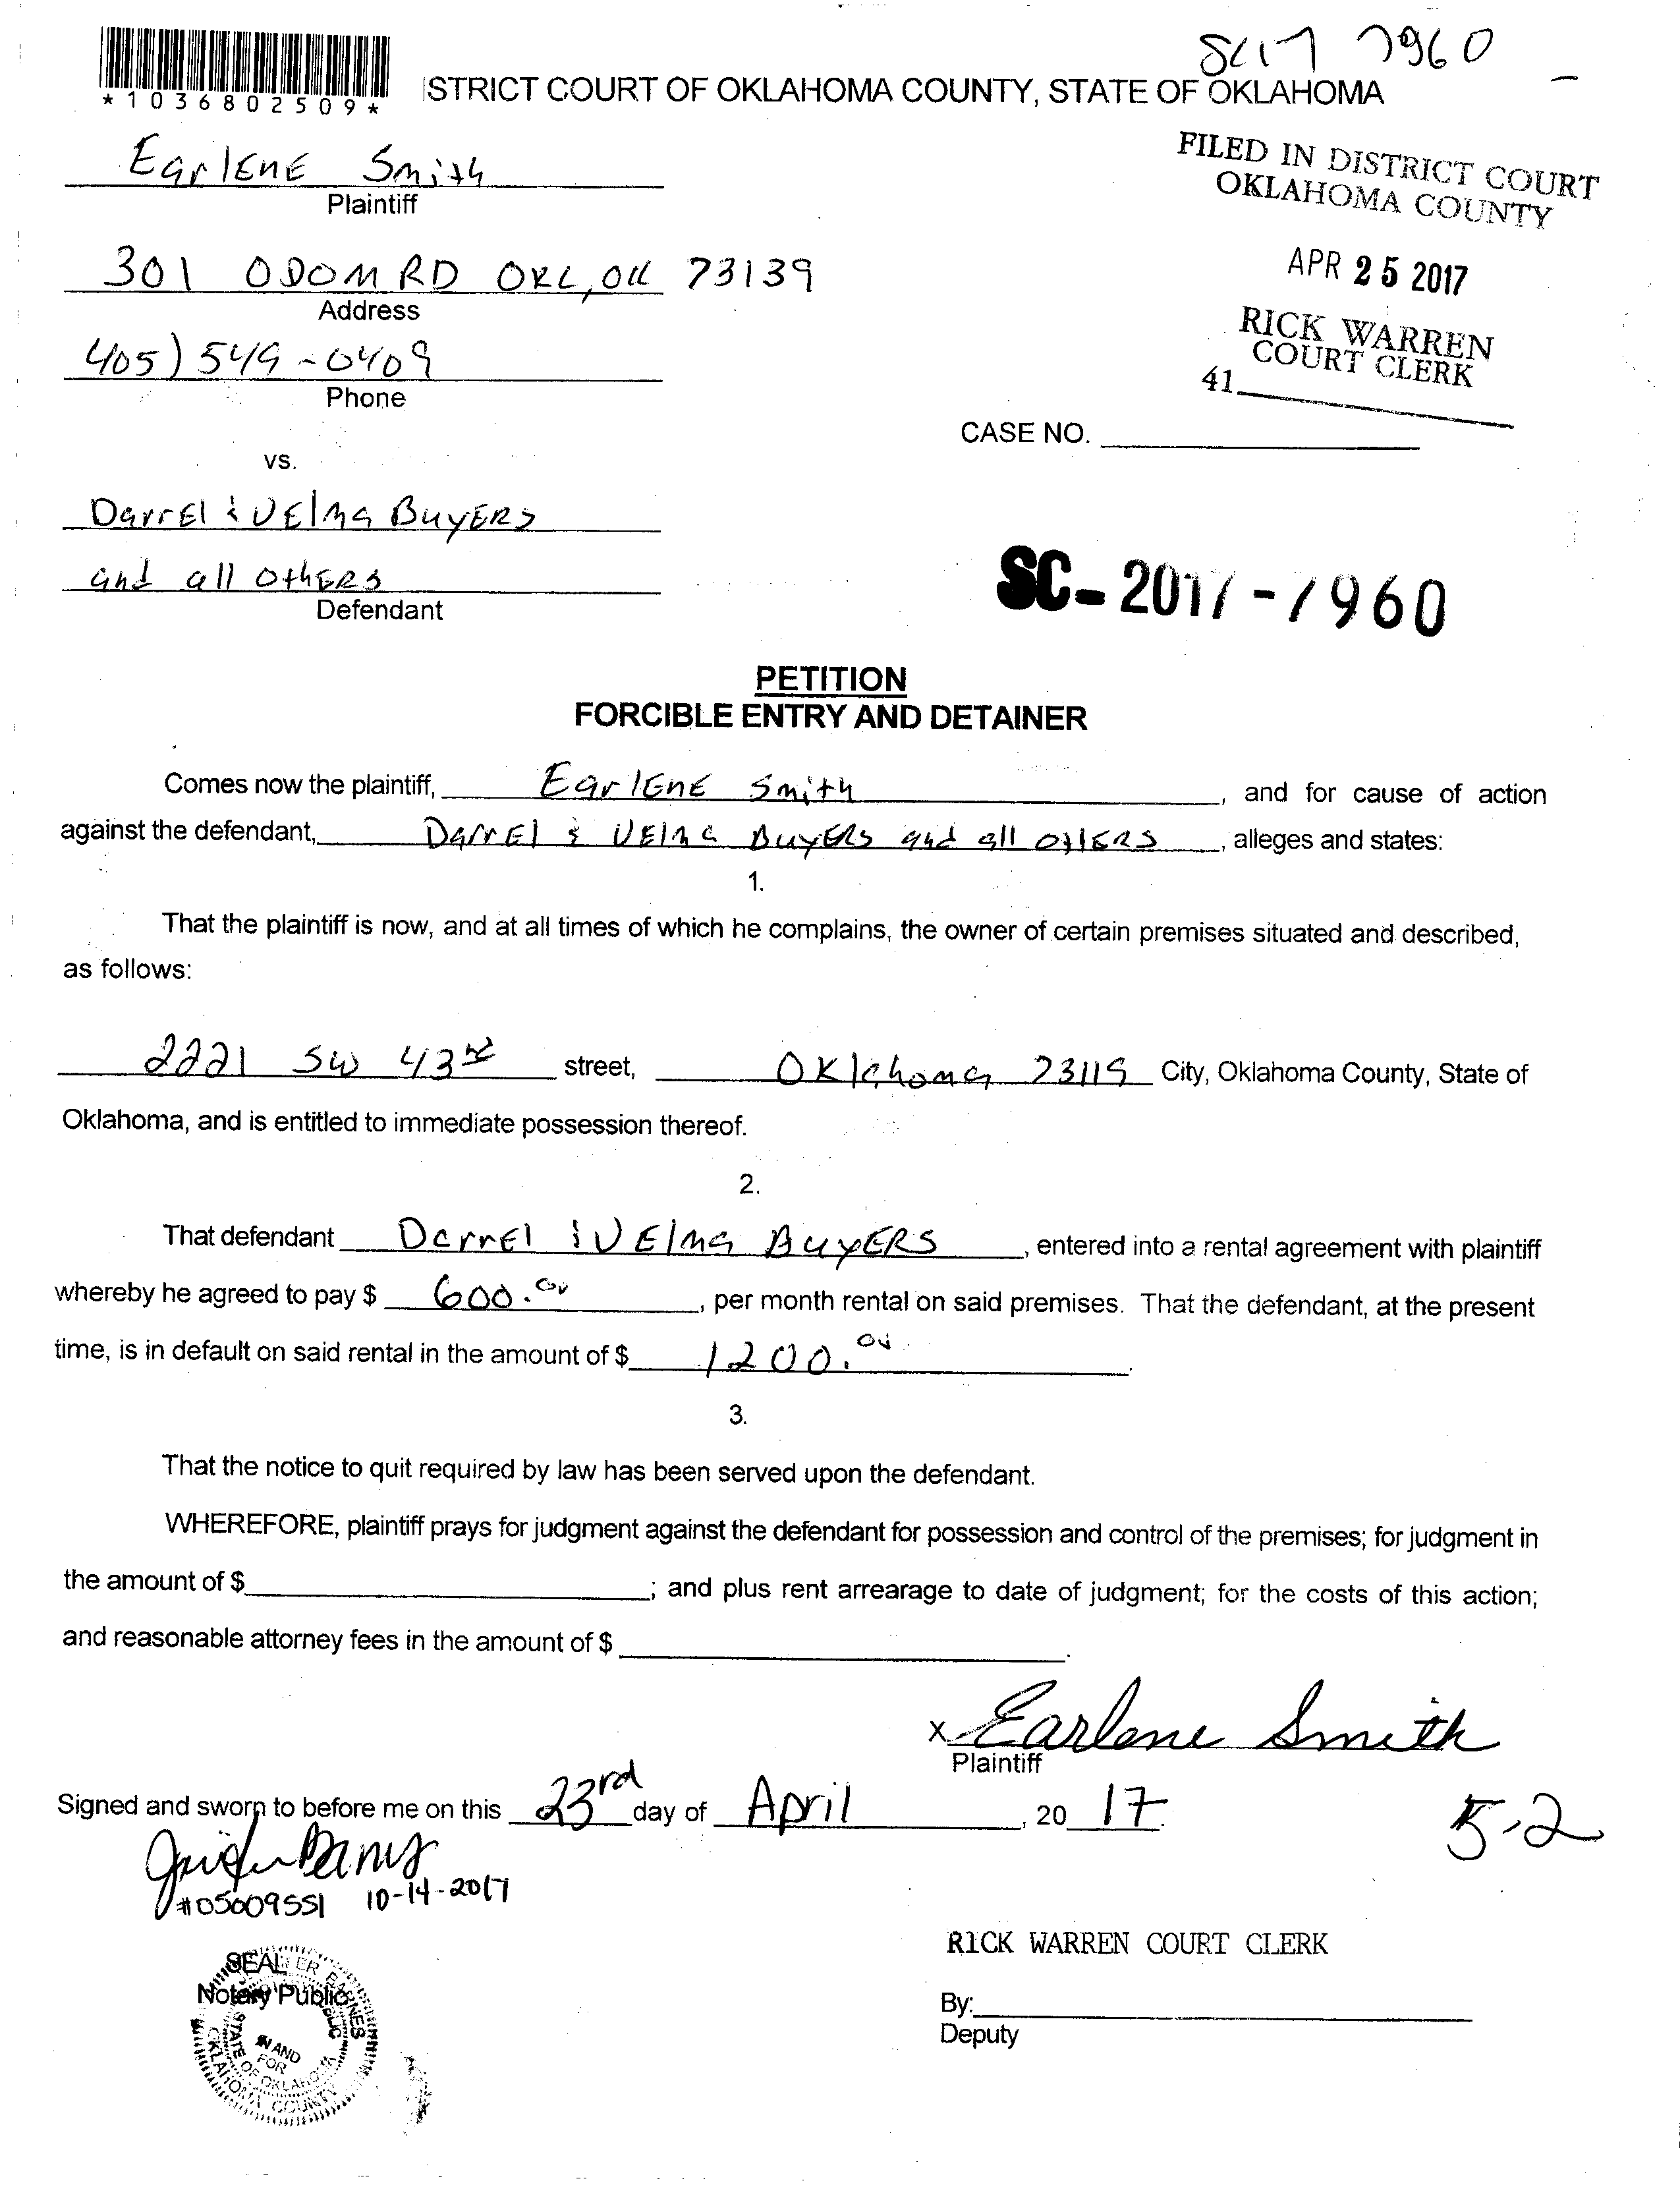 SC17 7960
*1036802509*
ISTRICT COURT OF OKLAHOMA COUNTY, STATE OF OKLAHOMA
FILED IN DISTRICT COURT
OKLAHOMA COUNTY
APR 25 2017
RICK WARREN
COURT CLERK
41
EarlEnE Smith
Plaintiff
301 ODOM RD OKC, OK 73139
Address
405) 549-0409
Phone
CASE NO.
vs.
DarrEl & VElma BuyERS
and all othERS
Defendant
SC-2017-7960
PETITION
FORCIBLE ENTRY AND DETAINER
Comes now the plaintiff, EarlEnE Smith, and for cause of action
against the defendant, DarrEl & VElma BuyERS and all othERS, alleges and states:
1.
That the plaintiff is now, and at all times of which he complains, the owner of certain premises situated and described,
as follows:
2221 SW 43rd street, Oklahoma 73119 City, Oklahoma County, State of
Oklahoma, and is entitled to immediate possession thereof.
2.
That defendant DarrEl & VElma BuyERS, entered into a rental agreement with plaintiff
whereby he agreed to pay $ 600.00, per month rental on said premises. That the defendant, at the present
time, is in default on said rental in the amount of $ 1200.00.
3.
That the notice to quit required by law has been served upon the defendant.
WHEREFORE, plaintiff prays for judgment against the defendant for possession and control of the premises; for judgment in
the amount of $; and plus rent arrearage to date of judgment; for the costs of this action;
and reasonable attorney fees in the amount of $.
X Earlene Smith
Plaintiff
Signed and sworn to before me on this 23rd day of April, 2017.
5-2
#05009551 10-14-2017
RICK WARREN COURT CLERK
SEAL
Notary Public
IN AND
FOR
STATE OF OKLAHOMA
OKLAHOMA COUNTY
By:
Deputy